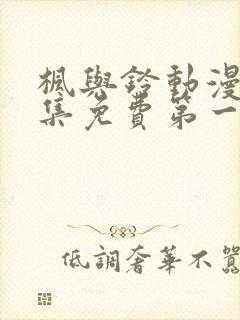 楓與鈴動漫
集免費第一
低調奢華不囂